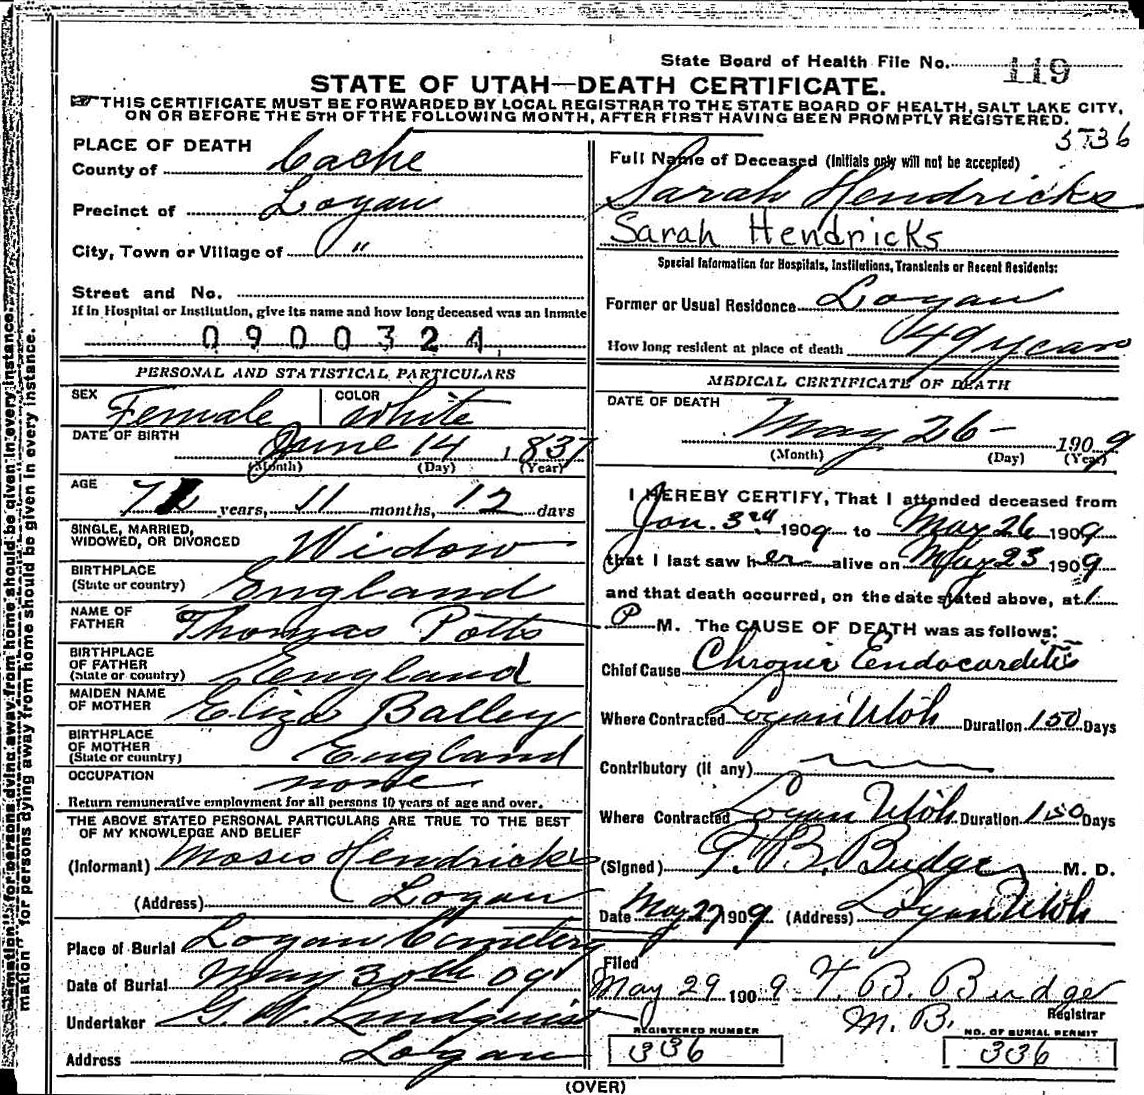 State Board of Health File No. 119
STATE OF UTAH—DEATH CERTIFICATE.
THIS CERTIFICATE MUST BE FORWARDED BY LOCAL REGISTRAR TO THE STATE BOARD OF HEALTH, SALT LAKE CITY,
ON OR BEFORE THE 5TH OF THE FOLLOWING MONTH, AFTER FIRST HAVING BEEN PROMPTLY REGISTERED.
5736
PLACE OF DEATH
County of Cache
Precinct of Logan
City, Town or Village of "
Street and No.
If in Hospital or Institution, give its name and how long deceased was an Inmate
0900324
PERSONAL AND STATISTICAL PARTICULARS
SEX Female COLOR white
DATE OF BIRTH June 14 1837
(Month) (Day) (Year)
AGE 71 years, 11 months, 12 days
SINGLE, MARRIED,
WIDOWED, OR DIVORCED Widow
BIRTHPLACE
(State or country) England
NAME OF
FATHER Thomas Potts
BIRTHPLACE
OF FATHER
(State or country) England
MAIDEN NAME
OF MOTHER Eliza Balley
BIRTHPLACE
OF MOTHER
(State or country) England
OCCUPATION none
Return remunerative employment for all persons 10 years of age and over.
THE ABOVE STATED PERSONAL PARTICULARS ARE TRUE TO THE BEST
OF MY KNOWLEDGE AND BELIEF
(Informant) Moses Hendricks
(Address) Logan
Place of Burial Logan Cemetery
Date of Burial May 30th 09
Undertaker G. W. Lindquist
Address Logan
Full Name of Deceased (Initials only will not be accepted)
Sarah Hendricks
Sarah Hendricks
Special Information for Hospitals, Institutions, Transients or Recent Residents:
Former or Usual Residence Logan
How long resident at place of death 49 years
MEDICAL CERTIFICATE OF DEATH
DATE OF DEATH
May 26 - 1909
(Month) (Day) (Year)
I HEREBY CERTIFY, That I attended deceased from
Jan. 3rd 1909 to May 26 1909
that I last saw her alive on May 23 1909
and that death occurred, on the date stated above, at 1
P M. The CAUSE OF DEATH was as follows:
Chief Cause Chronic Endocarditis
Where Contracted Logan Utah Duration 150 Days
Contributory (if any)
Where Contracted Logan Utah Duration 150 Days
(Signed) T. B. Budge M. D.
Date May 27 1909 (Address) Logan Utah
Filed
May 29 1909 T. B. Budge
M. D. Registrar
REGISTERED NUMBER
336
NO. OF BURIAL PERMIT
336
(OVER)
mation" for persons dying away from home should be given in every instance.